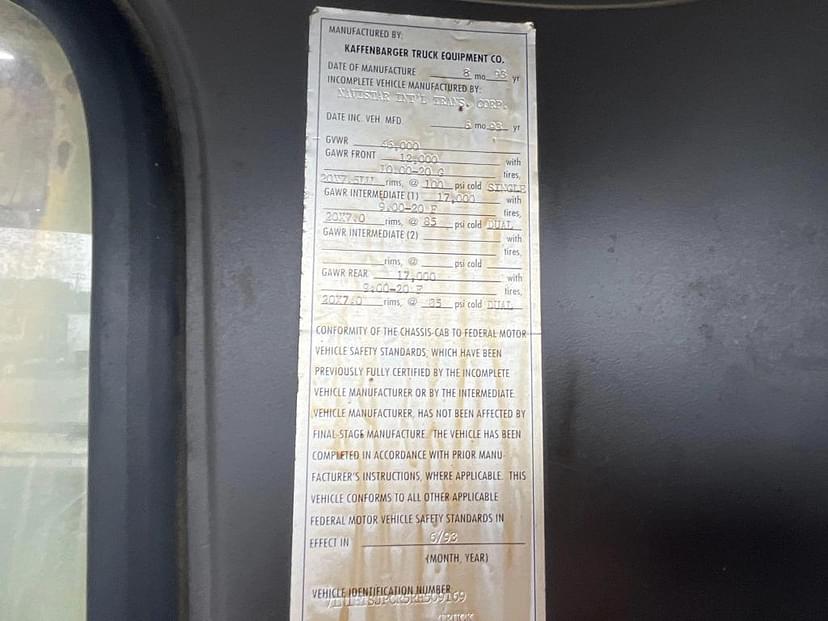 MANUFACTURED BY:
KAFFENBARGER TRUCK EQUIPMENT CO.
DATE OF MANUFACTURE 8 mo. 93 yr
INCOMPLETE VEHICLE MANUFACTURED BY:
NAVISTAR INT'L TRANS. CORP.
DATE INC. VEH. MFD. 6 mo. 93 yr
GVWR 46,000
GAWR FRONT 12,000 with
10:00-20 G tires,
20X7.5 rims, @ 100 psi cold SINGLE
GAWR INTERMEDIATE (1) 17,000 with
9:00-20 F tires,
20X7.0 rims, @ 85 psi cold DUAL
GAWR INTERMEDIATE (2) with
tires,
rims, @ psi cold
GAWR REAR 17,000 with
9:00-20 F tires,
20X7.0 rims, @ 85 psi cold DUAL
CONFORMITY OF THE CHASSIS-CAB TO FEDERAL MOTOR
VEHICLE SAFETY STANDARDS, WHICH HAVE BEEN
PREVIOUSLY FULLY CERTIFIED BY THE INCOMPLETE
VEHICLE MANUFACTURER OR BY THE INTERMEDIATE
VEHICLE MANUFACTURER, HAS NOT BEEN AFFECTED BY
FINAL-STAGE MANUFACTURE. THE VEHICLE HAS BEEN
COMPLETED IN ACCORDANCE WITH PRIOR MANU-
FACTURER'S INSTRUCTIONS, WHERE APPLICABLE. THIS
VEHICLE CONFORMS TO ALL OTHER APPLICABLE
FEDERAL MOTOR VEHICLE SAFETY STANDARDS IN
EFFECT IN 6/93
(MONTH, YEAR)
VEHICLE IDENTIFICATION NUMBER
TRUCK